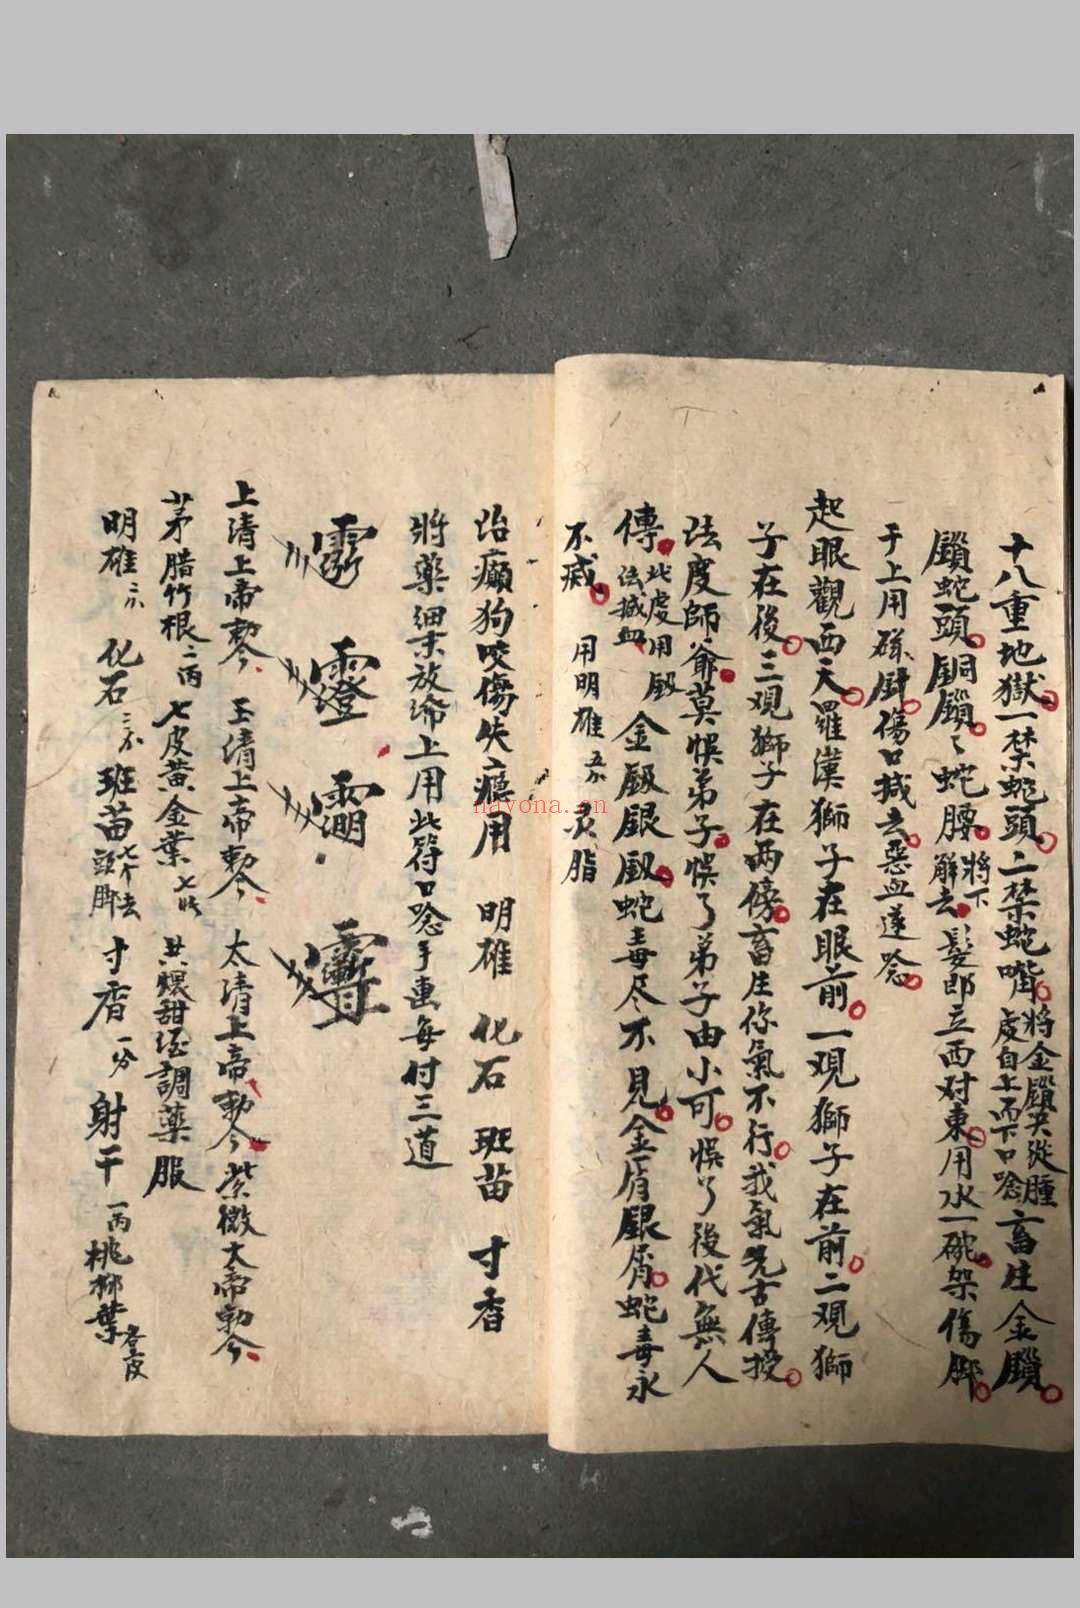 十八重地獄一禁蛇頭二禁蛇嘴將金鎖从從腫處自上而下口唸畜生金鎖
鎖蛇頭銅鎖々蛇腰將下解去髮即立西对東用水一碗架傷脚
于上用磁 傷口搣去惡血遂唸
起眼觀西天羅漢獅子在眼前一观獅子在前二观獅
子在後三观獅子在兩傍畜生你氣不行我氣先古傳授
法度師爺莫悞弟子悞了弟子由小可悞了後代無人
傳此處用 法搣血金 銀 蛇毒尽不見金屑銀屑蛇毒永
不 用明雄五分灵脂
治癲狗咬傷失癮用 明雄 化石 班苗 寸香
將藥細末放 上用此符口唸手画每付三道
上清上帝勅令 玉清上帝勅令 太清上帝勅令 紫微大帝勅令
茅腊竹根二两 七皮黄金葉七 共 甜酒調藥服
明雄二分 化石二分 班苗七个去頭脚 寸香一分 射干一两 桃柳葉各皮
nayona.cn